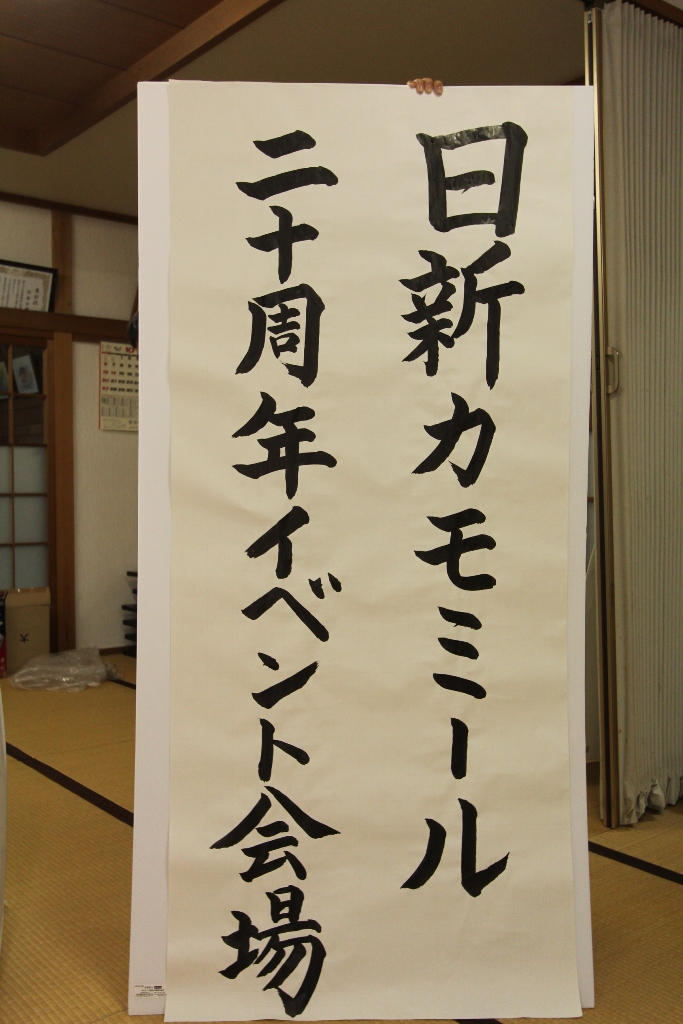 日新カモミール
二十周年イベント会場